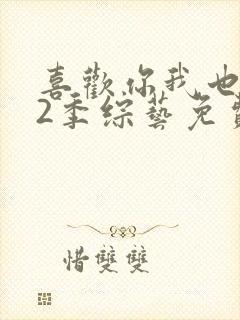 喜歡你我也
2季綜藝免費
惜雙雙